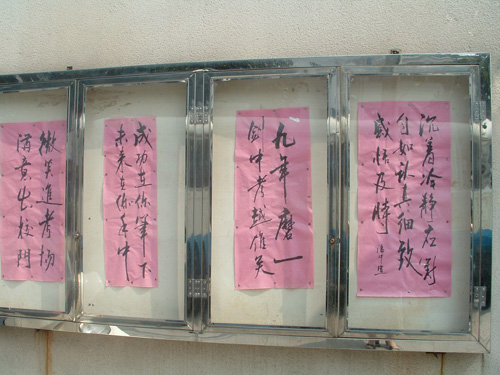 沉着冷静应对
自如认真细致
感悟及时
九年磨一
剑中考
成功在你笔下
未来在你手中
微笑进考场
满意出校门